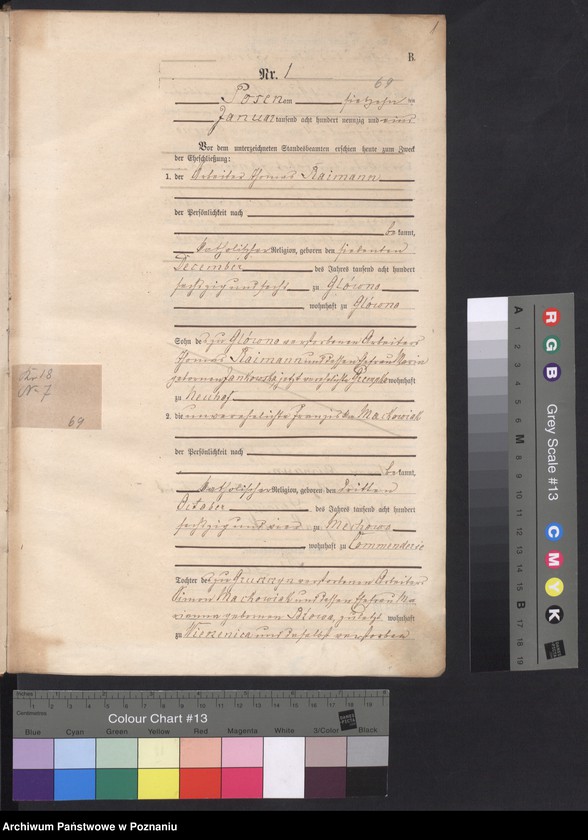 1
B.
Nr. 1
69
Posen am
Januar tausend acht hundert neunzig und eins
Vor dem unterzeichneten Standesbeamten erschien heute zum Zweck
der Eheschließung:
1. der Arbeiter Thomas Raimann
der Persönlichkeit nach
be kannt,
katholischer Religion, geboren den siebenten
December des Jahres tausend acht hundert
sechszig und sechs zu Glówno
wohnhaft zu Glówno
Sohn des zu Glówno verstorbenen Arbeiters
Thomas Raimann und dessen Ehefrau Maria
geborenen Jankowska jetzt verehelichte wohnhaft
zu Neuhof
2. die unverehelichte Franziska Mackowiak
der Persönlichkeit nach
be kannt,
katholischer Religion, geboren den dritten
October des Jahres tausend acht hundert
sechszig und vier zu Mechowo
wohnhaft zu Commenderie
Tochter des zu Gruszczyn verstorbenen Arbeiters
Simon Mackowiak und dessen Ehefrau Ma-
rianna geborenen zuletzt wohnhaft
zu Wierzenica und daselbst verstorben
No 7
69
Inches
Centimetres
Colour Chart #13
Blue Cyan Green Yellow Red Magenta White 3/Color Black
R G B Grey Scale #13 C M Y K
A M B
Archiwum Państwowe w Poznaniu